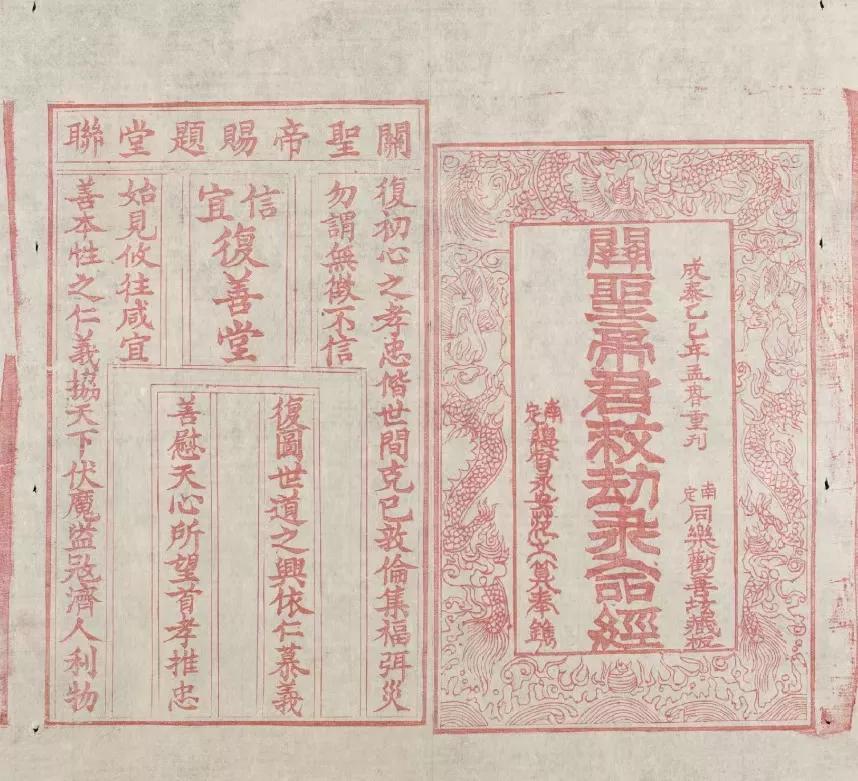 成泰乙巳年孟春重刊
南定同樂勸善壇藏板
關聖帝君救劫永命經
南定總督奉鐫
關聖帝賜題堂聯
復初心之孝忠偕世間克已敦倫集福弭災
勿謂無徵不信
信宜
復善堂
始見攸往咸宜
善本性之仁義協天下伏魔盪寇濟人利物
復圖世道之興依仁慕義
善慰天心所望首孝推忠